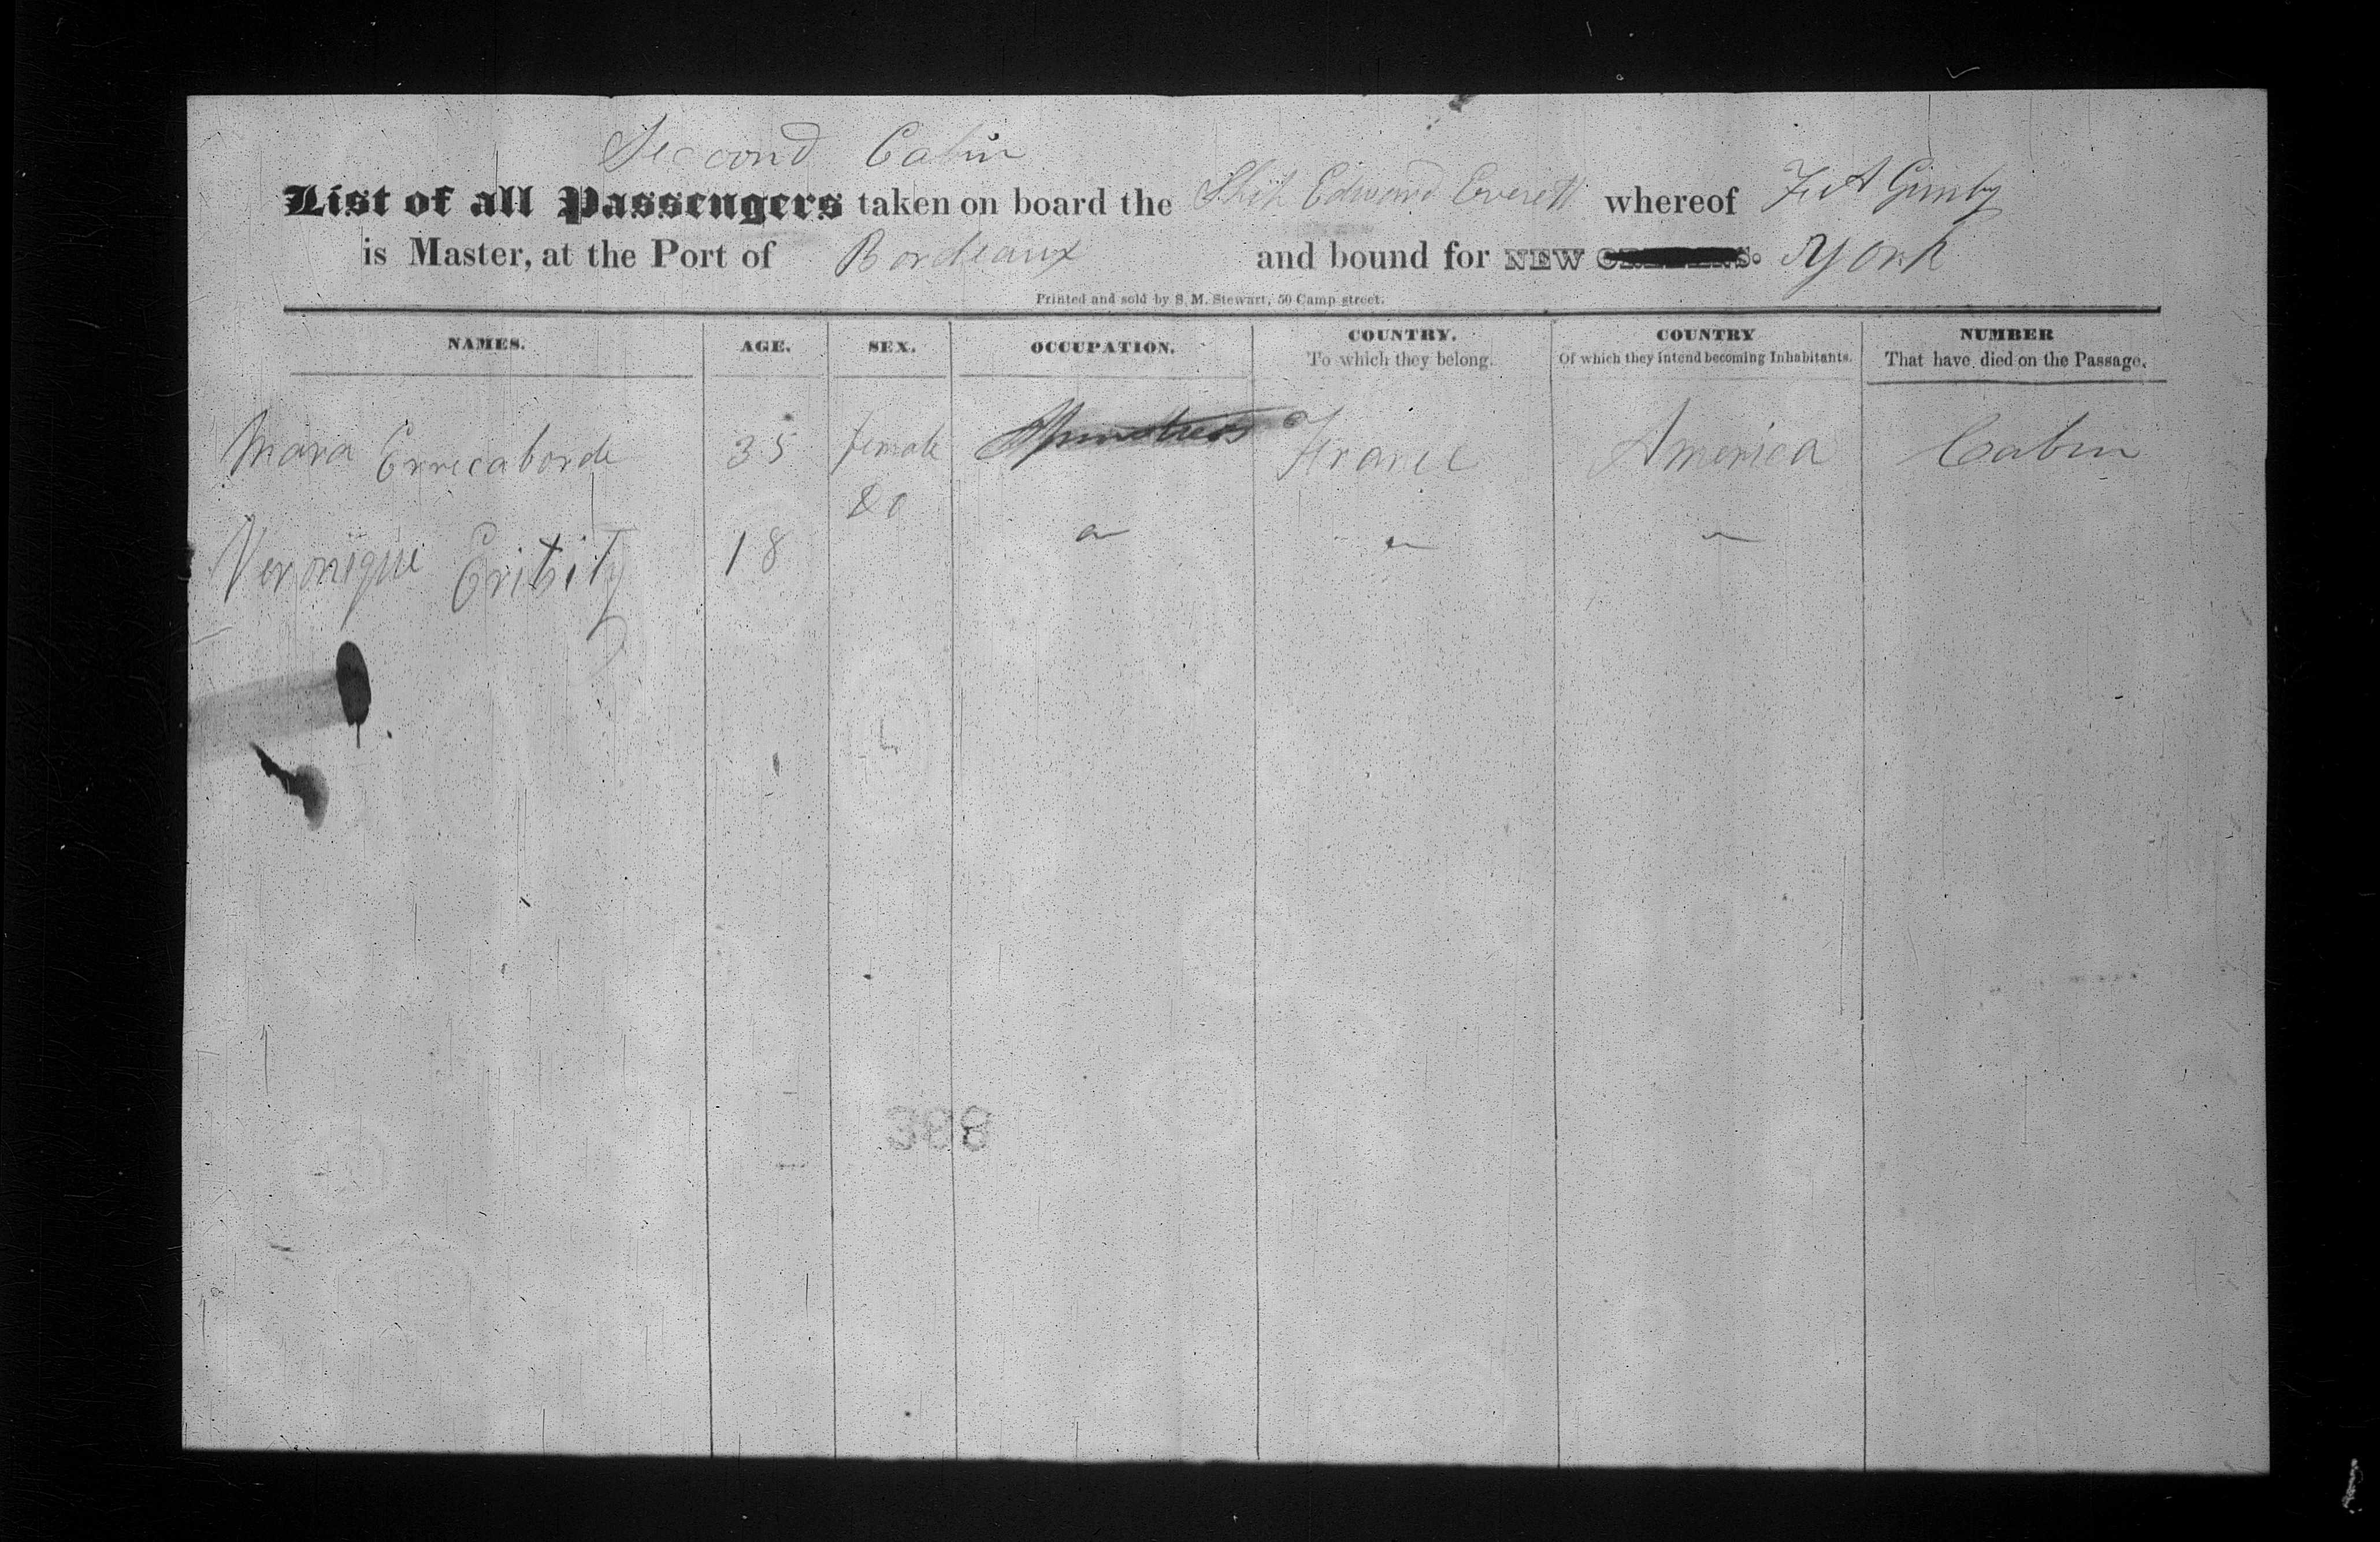 Second Cabin
List of all Passengers taken on board the Ship Edward Everett whereof
is Master, at the Port of Bordeaux and bound for NEW York
Printed and sold by S. M. Stewart, 50 Camp street.
NAMES. AGE. SEX. OCCUPATION. COUNTRY. To which they belong. COUNTRY Of which they intend becoming Inhabitants. NUMBER That have died on the Passage.
Mara Erricaborde 35 female France America Cabin
Veronique 18 do
368